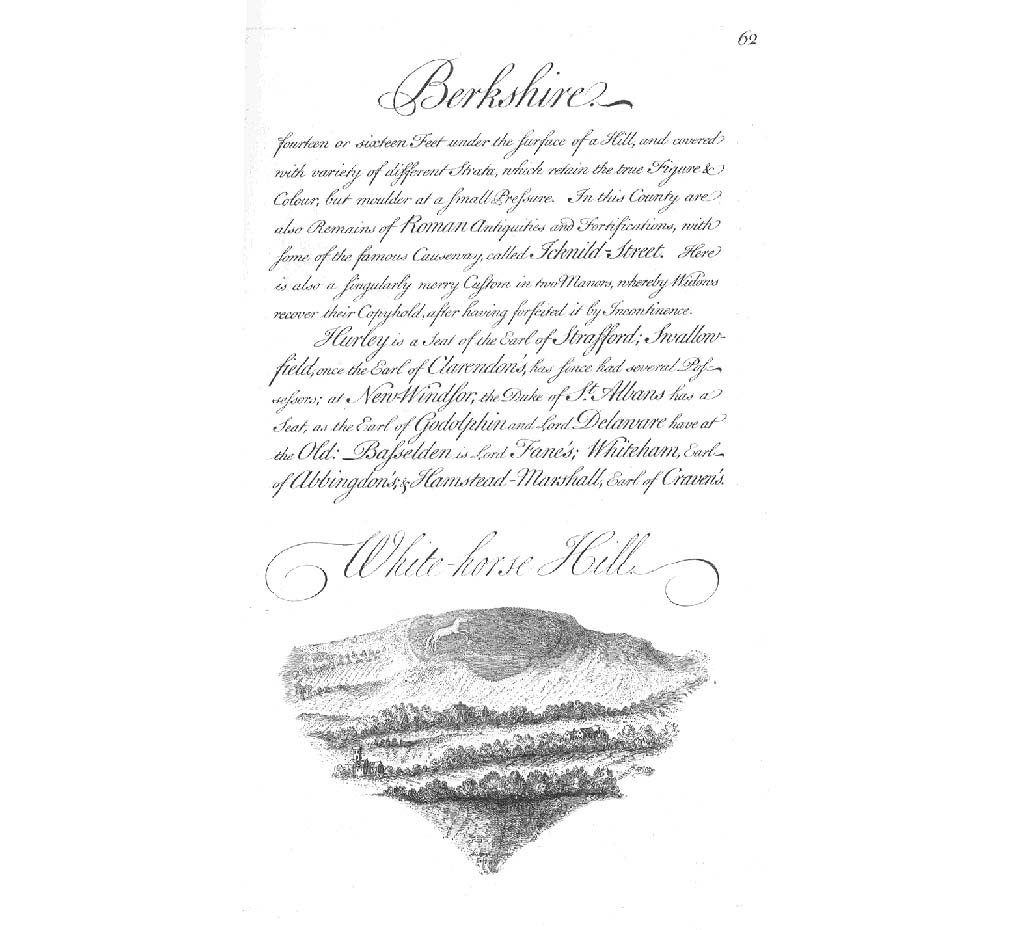 62
Berkshire.
fourteen or sixteen Feet under the ſurface of a Hill, and covered
with variety of different Strata, which retain the true Figure &
Colour, but moulder at a ſmall Preſsure. In this County are
also Remains of Roman Antiquities and Fortifications, with
ſome of the famous Causeway, called Icknild-Street. Here
is also a ſingularly merry Cuſtom in two Manors, whereby Widows
recover their Copyhold, after having forfeited it by Incontinence.
Hurley is a Seat of the Earl of Strafford; Swallow-
field, once the Earl of Clarendon's, has ſince had several Poſ-
seſsors; at New Windſor, the Duke of St. Albans has a
Seat, as the Earl of Godolphin and Lord Delaware have at
the Old: Baſselden is Lord Fane's; Whiteham, Earl
of Abbingdon's; & Hamstead-Marshall, Earl of Craven's.
White-horse Hill.